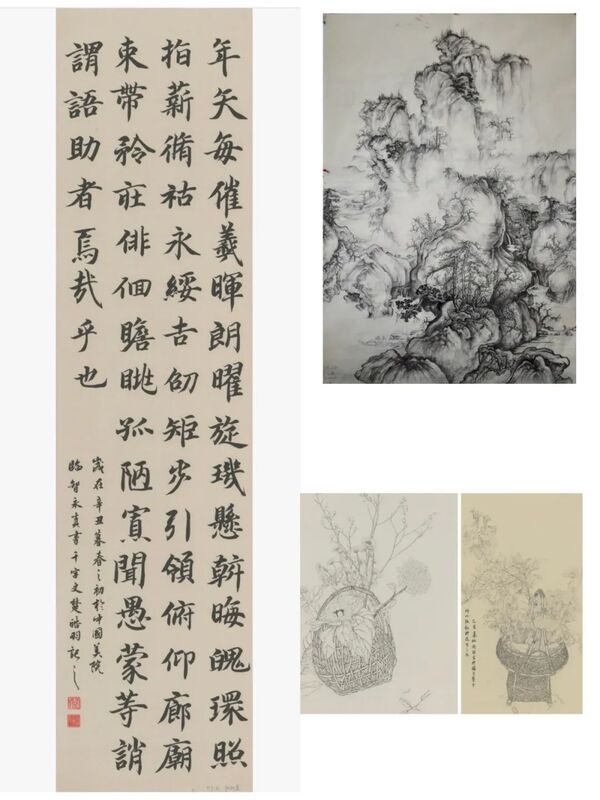 年矢每催羲暉朗曜旋璣懸斡晦魄環照
指薪脩祜永綏吉劭矩步引領俯仰廊廟
束帶矜莊俳佪瞻眺孤陋寡聞愚蒙等誚
謂語助者焉哉乎也
歲在辛丑暮春之初於中國美院
臨智永真書千字文楚羽記之